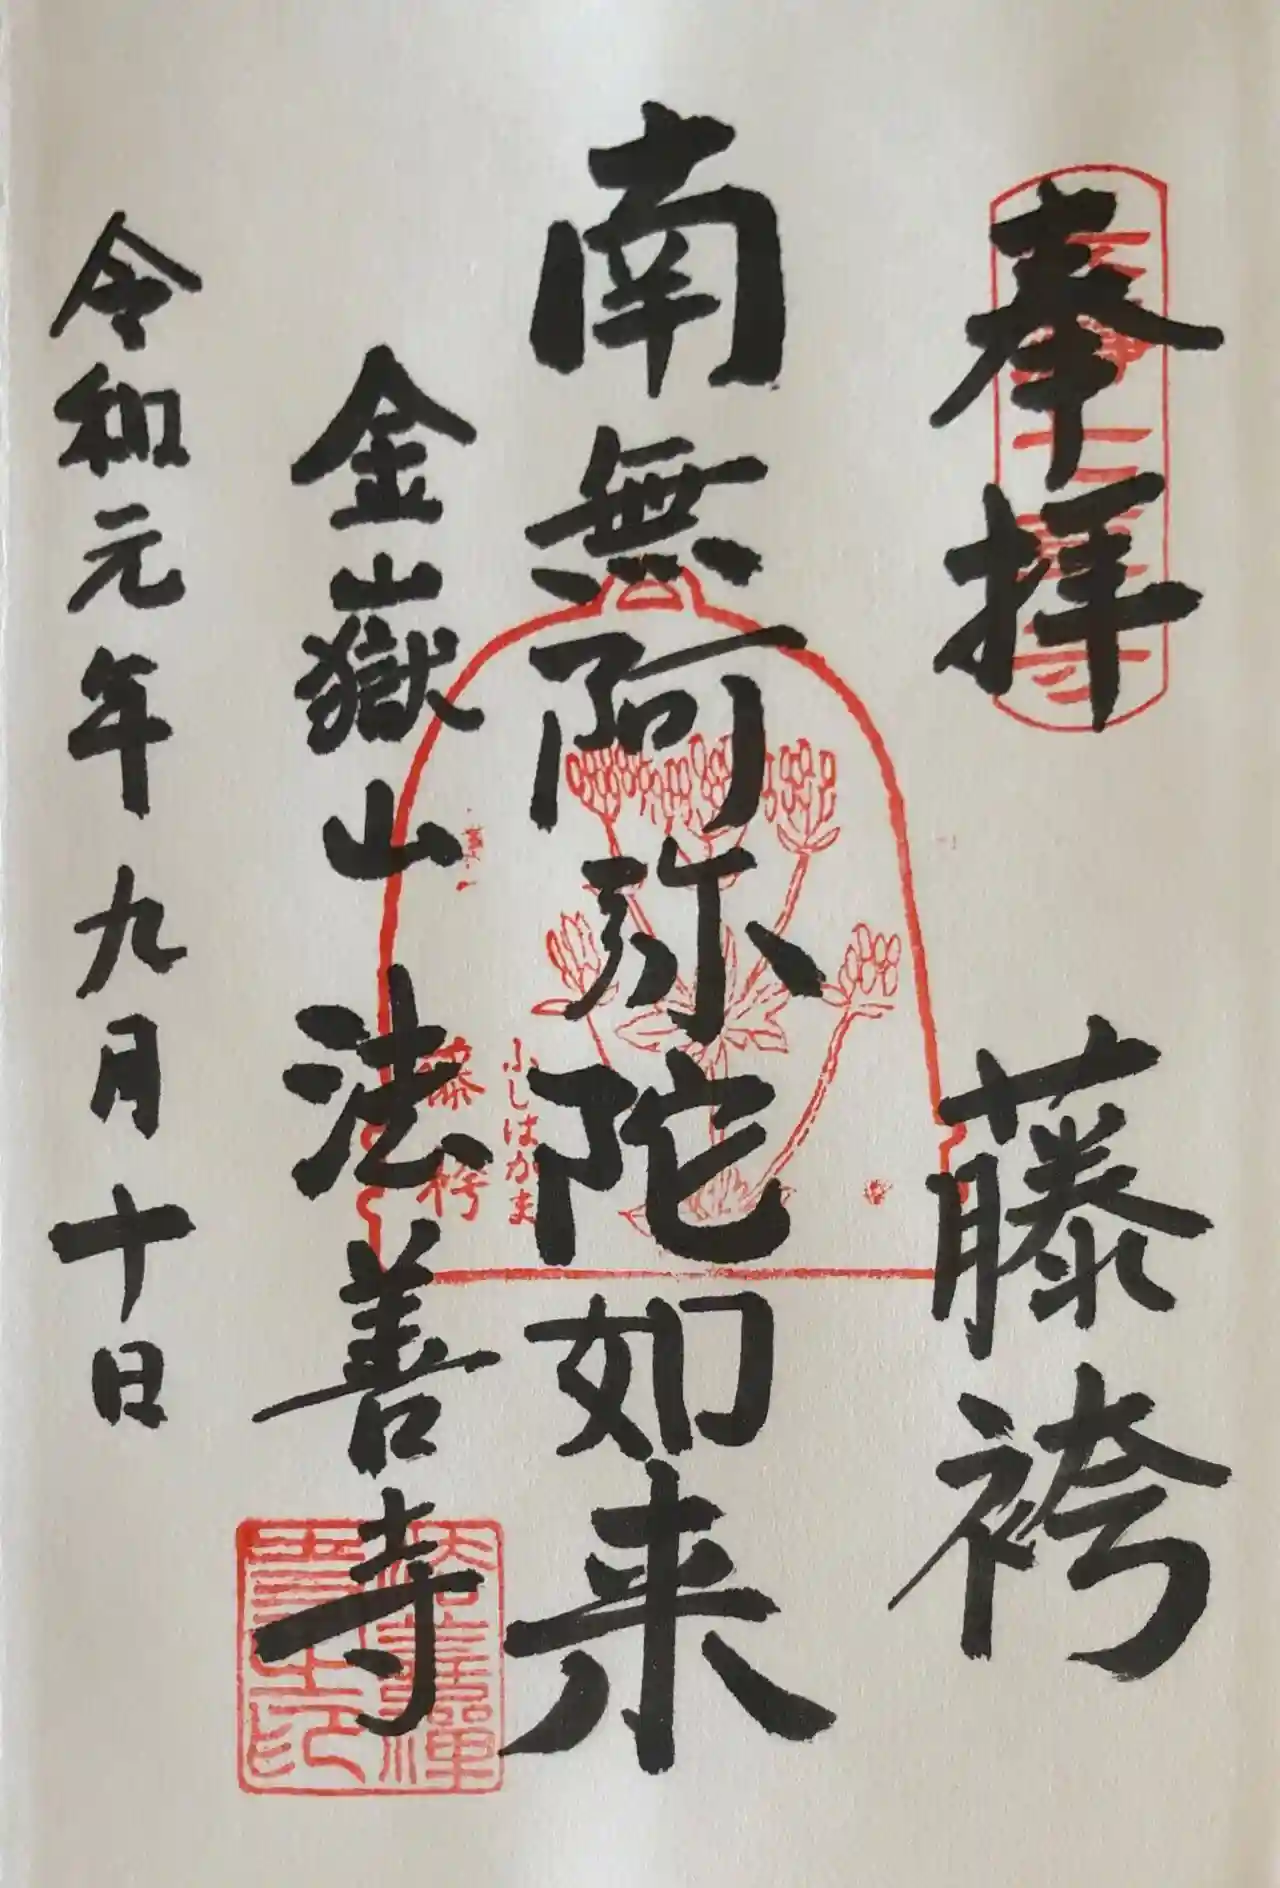 奉拝　藤袴
南無阿弥陀如来
ふじばかま
藤袴
金嶽山　法善寺
令和元年九月十日